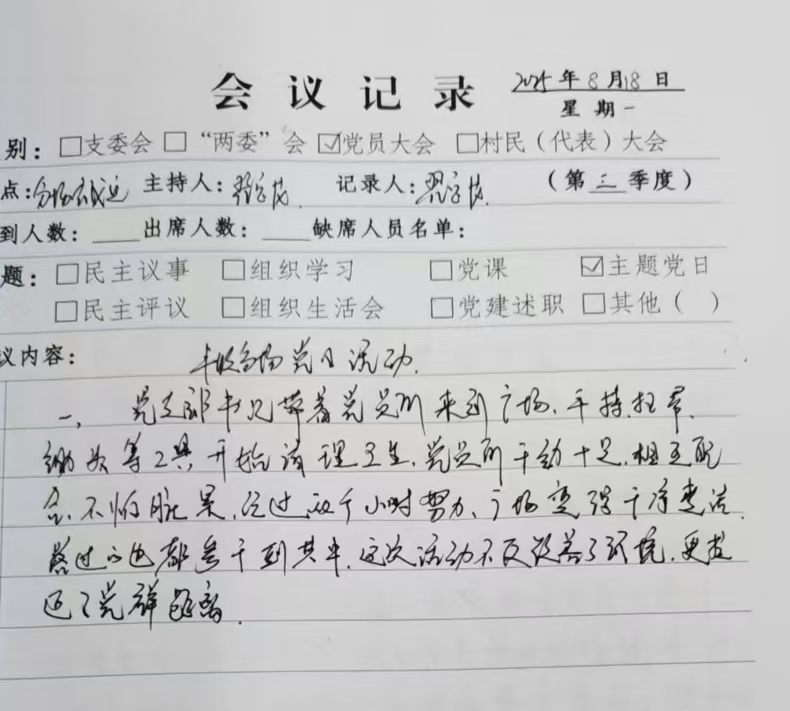 会议记录 2025年8月18日
星期一
别：□支委会 □“两委”会 ☑党员大会 □村民（代表）大会
点： 主持人： 记录人： （第三季度）
到人数：____ 出席人数：____ 缺席人员名单：
题：□民主议事 □组织学习 □党课 ☑主题党日
□民主评议 □组织生活会 □党建述职 □其他（ ）
议内容： 丰收广场党日活动.
一、党支部书记带着党员们来到广场，手持扫帚、
锄头等工具开始清理卫生，党员们干劲十足，相互配
合，不怕脏累，经过两个小时努力，广场变得干净整洁.
路过 都参于到其中，这次活动不仅改善了环境，更拉
近了党群距离.